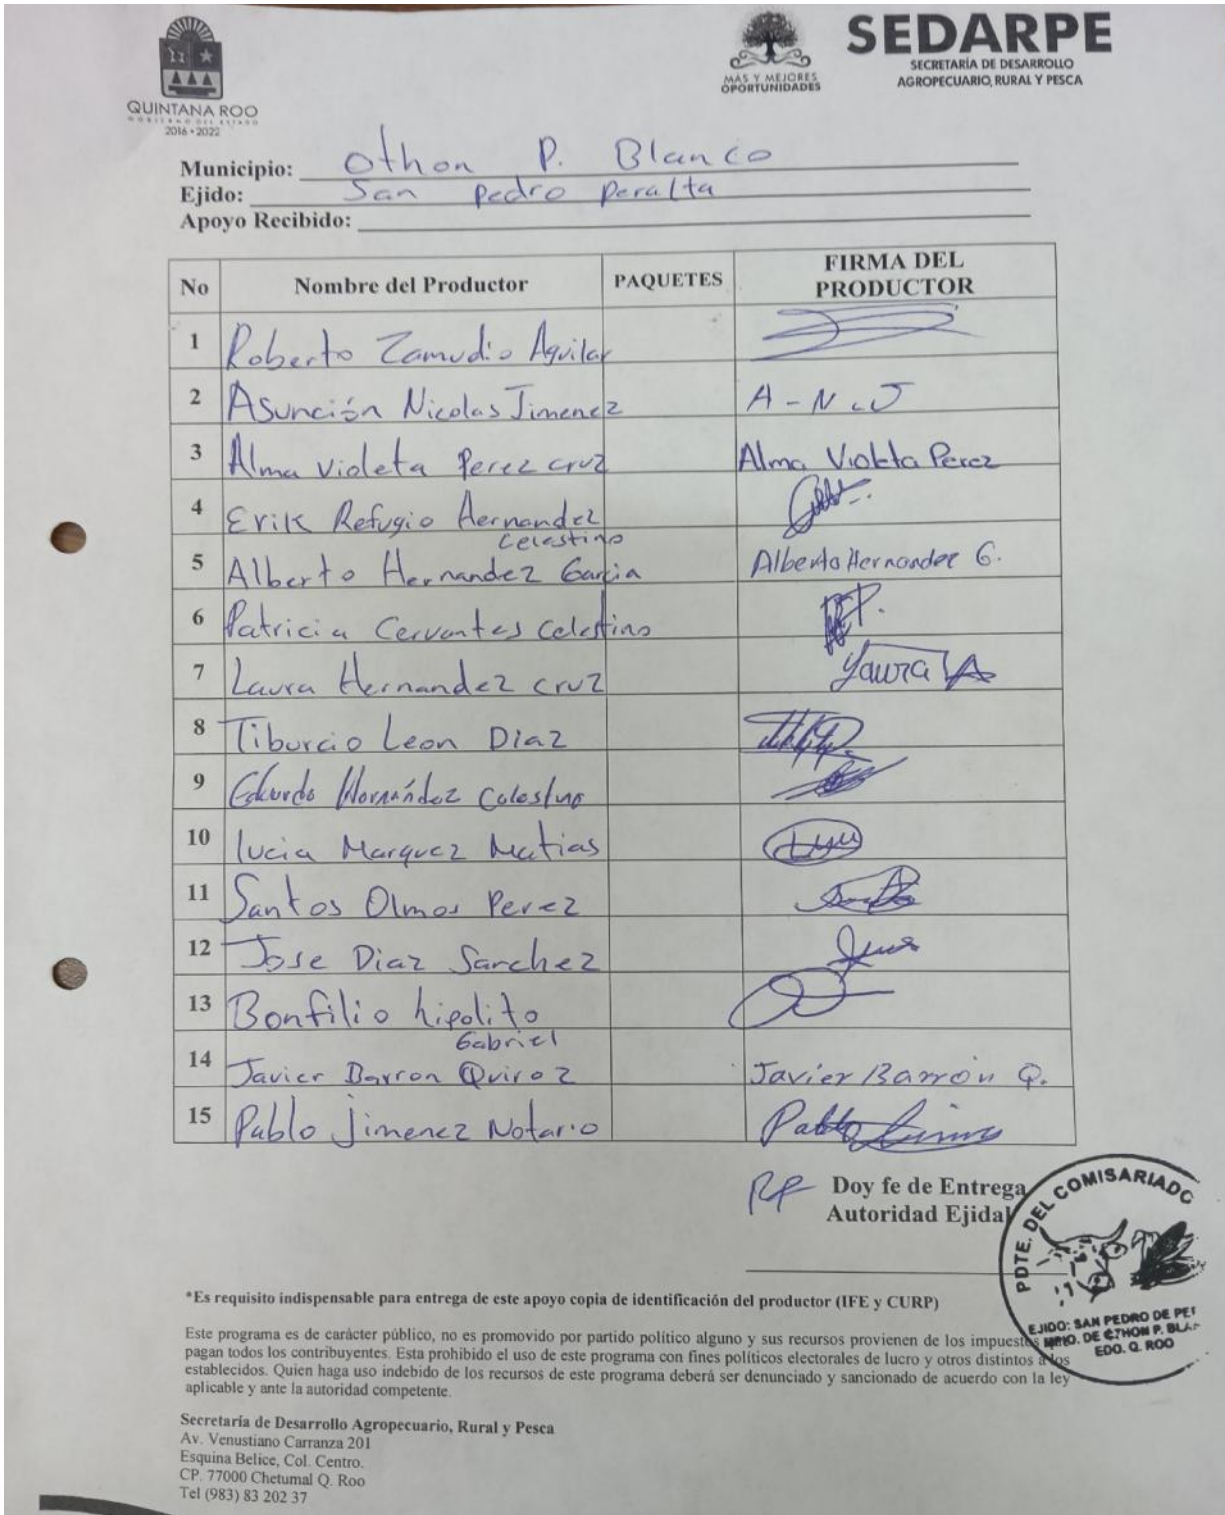 QUINTANA ROO
GOBIERNO DEL ESTADO
2016 • 2022
MÁS Y MEJORES
OPORTUNIDADES
SEDARPE
SECRETARÍA DE DESARROLLO
AGROPECUARIO, RURAL Y PESCA
Municipio: Othon P. Blanco
Ejido: San Pedro Peralta
Apoyo Recibido:
No Nombre del Productor PAQUETES FIRMA DEL PRODUCTOR
1 Roberto Zamudio Aguilar
2 Asunción Nicolas Jimenez A - N . J
3 Alma Violeta Perez cruz Alma Violeta Perez
4 Erik Refugio Hernandez
Celestino
5 Alberto Hernandez Garcia Alberto Hernandez G.
6 Patricia Cervantes Celestino
7 Laura Hernandez cruz Laura
8 Tiburcio Leon Diaz
9 Eduardo Hernández Celestino
10 lucia Marquez Matias
11 Santos Olmos Perez
12 Jose Diaz Sanchez
13 Bonfilio hipolito
Gabriel
14 Javier Barron Quiroz Javier Barrón Q.
15 Pablo Jimenez Notario Pablo
Doy fe de Entrega
Autoridad Ejidal
PDTE. DEL COMISARIADO
EJIDO: SAN PEDRO DE PE
MPIO. DE OTHON P. BLA
EDO. Q. ROO
*Es requisito indispensable para entrega de este apoyo copia de identificación del productor (IFE y CURP)
Este programa es de carácter público, no es promovido por partido político alguno y sus recursos provienen de los impuestos
pagan todos los contribuyentes. Esta prohibido el uso de este programa con fines políticos electorales de lucro y otros distintos a los
establecidos. Quien haga uso indebido de los recursos de este programa deberá ser denunciado y sancionado de acuerdo con la ley
aplicable y ante la autoridad competente.
Secretaría de Desarrollo Agropecuario, Rural y Pesca
Av. Venustiano Carranza 201
Esquina Belice, Col. Centro.
CP. 77000 Chetumal Q. Roo
Tel (983) 83 202 37